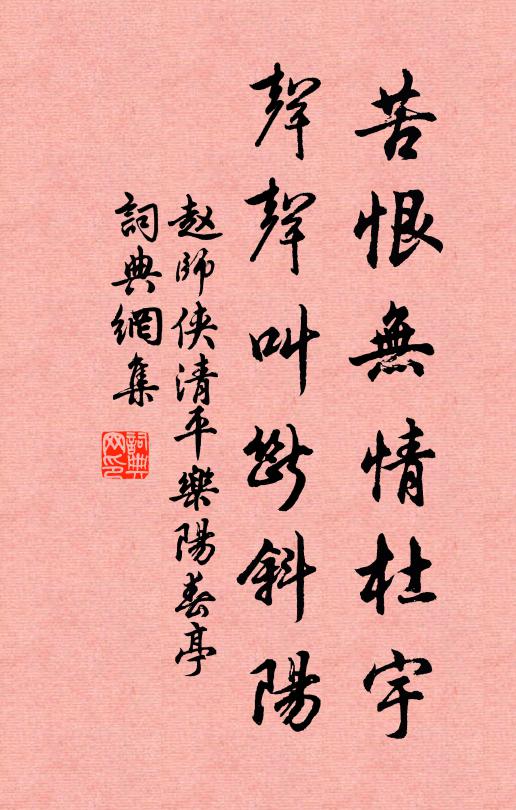 苦恨無情杜宇
聲聲叫斷斜陽
赵師侠清平樂陽春亭
詞典網集
詞典网印